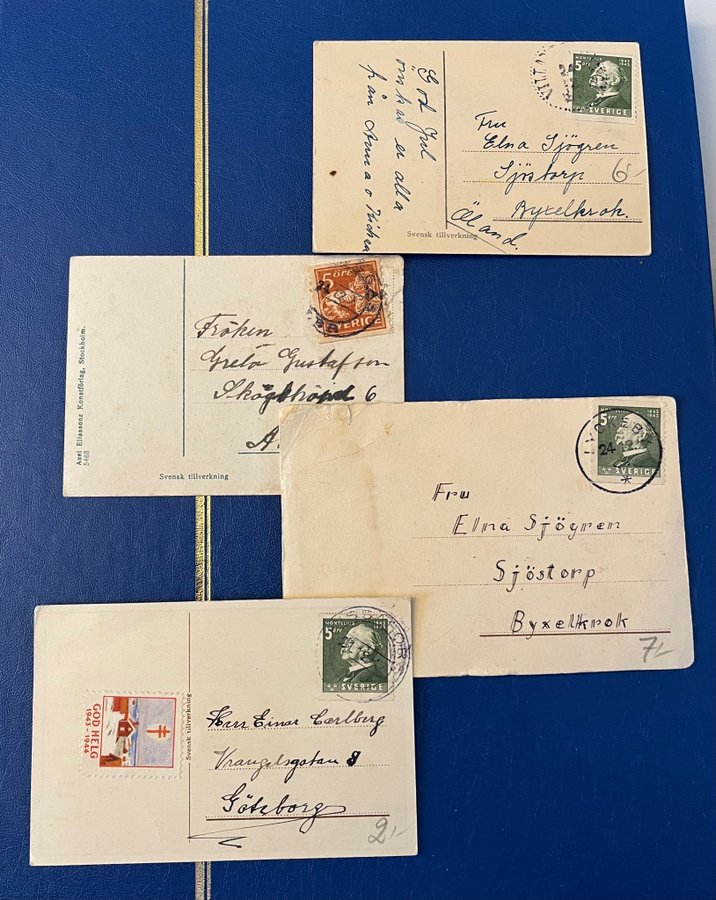 God Jul
önskas er alla
från Anna o
MONTELIUS 1843 1943
5 ÖRE
SVERIGE
Fru
Elna Sjögren
Sjöstorp
Byxelkrok.
Öland.
6-
Svensk tillverkning
5 ÖRE
SVERIGE
Fröken
Greta Gustafson
6
A.
Svensk tillverkning
Axel Eliassons Konstförlag, Stockholm.
5488
5 ÖRE
1843 1943
SVERIGE
LYCKEBY
24.12.
Fru
Elna Sjögren
Sjöstorp
Byxelkrok
7-
MONTELIUS 1843 1943
5 ÖRE
SVERIGE
GOD HELG
1943-1944
Svensk tillverkning
Herr Einar Carlberg
Vrangelsgatan 8
Göteborg
2-